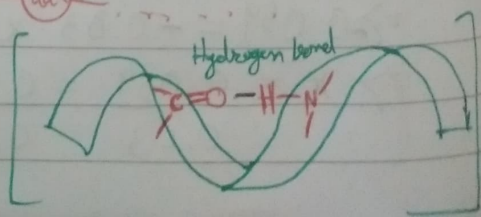 Hydrogen bond
C=O-H-N